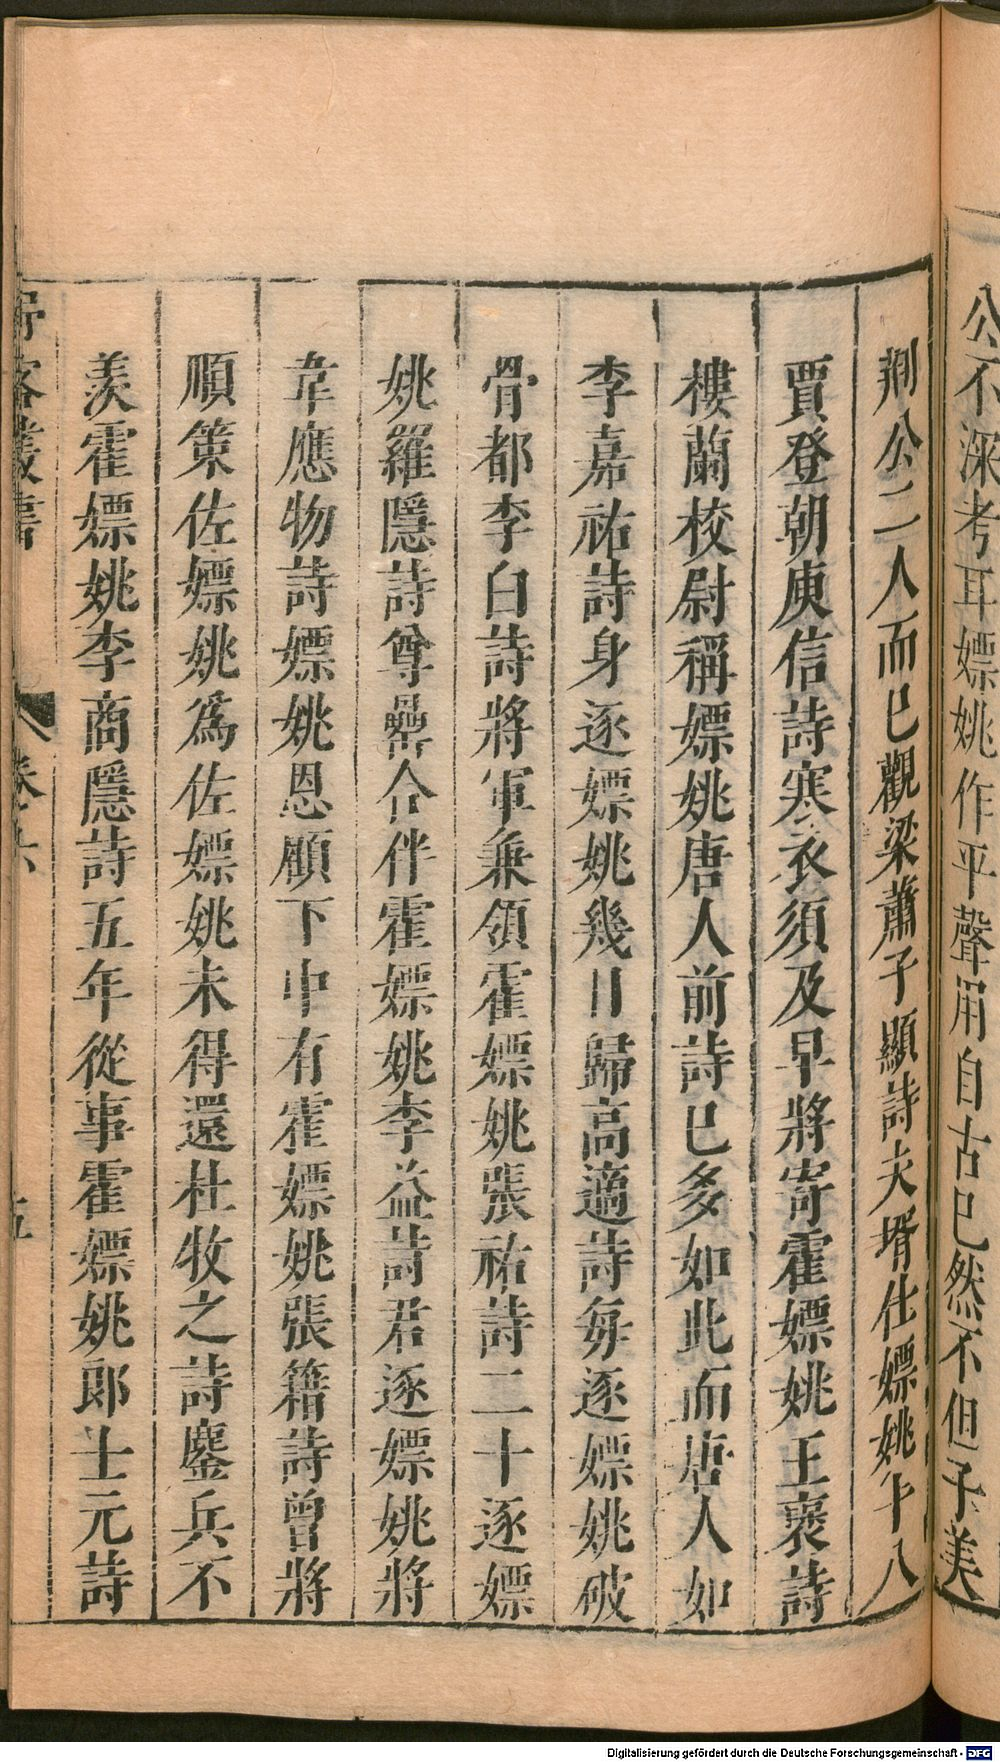 公不深考耳嫖姚作平聲用自古已然不但子美
荆公二人而已觀梁蕭子顯詩夫壻仕嫖姚十八
賈登朝庾信詩寒衣須及早將寄霍嫖姚王褒詩
樓蘭校尉稱嫖姚唐人前詩已多如此而唐人如
李嘉祐詩身逐嫖姚幾日歸高適詩每逐嫖姚破
骨都李白詩將軍兼領霍嫖姚張祐詩二十逐嫖
姚羅隱詩尊罍合伴霍嫖姚李益詩君逐嫖姚將
韋應物詩嫖姚恩顧下中有霍嫖姚張籍詩曾將
順策佐嫖姚爲佐嫖姚未得還杜牧之詩鏖兵不
羨霍嫖姚李商隱詩五年從事霍嫖姚郎士元詩
客叢書 卷六 五
Digitalisierung gefördert durch die Deutsche Forschungsgemeinschaft - DFG